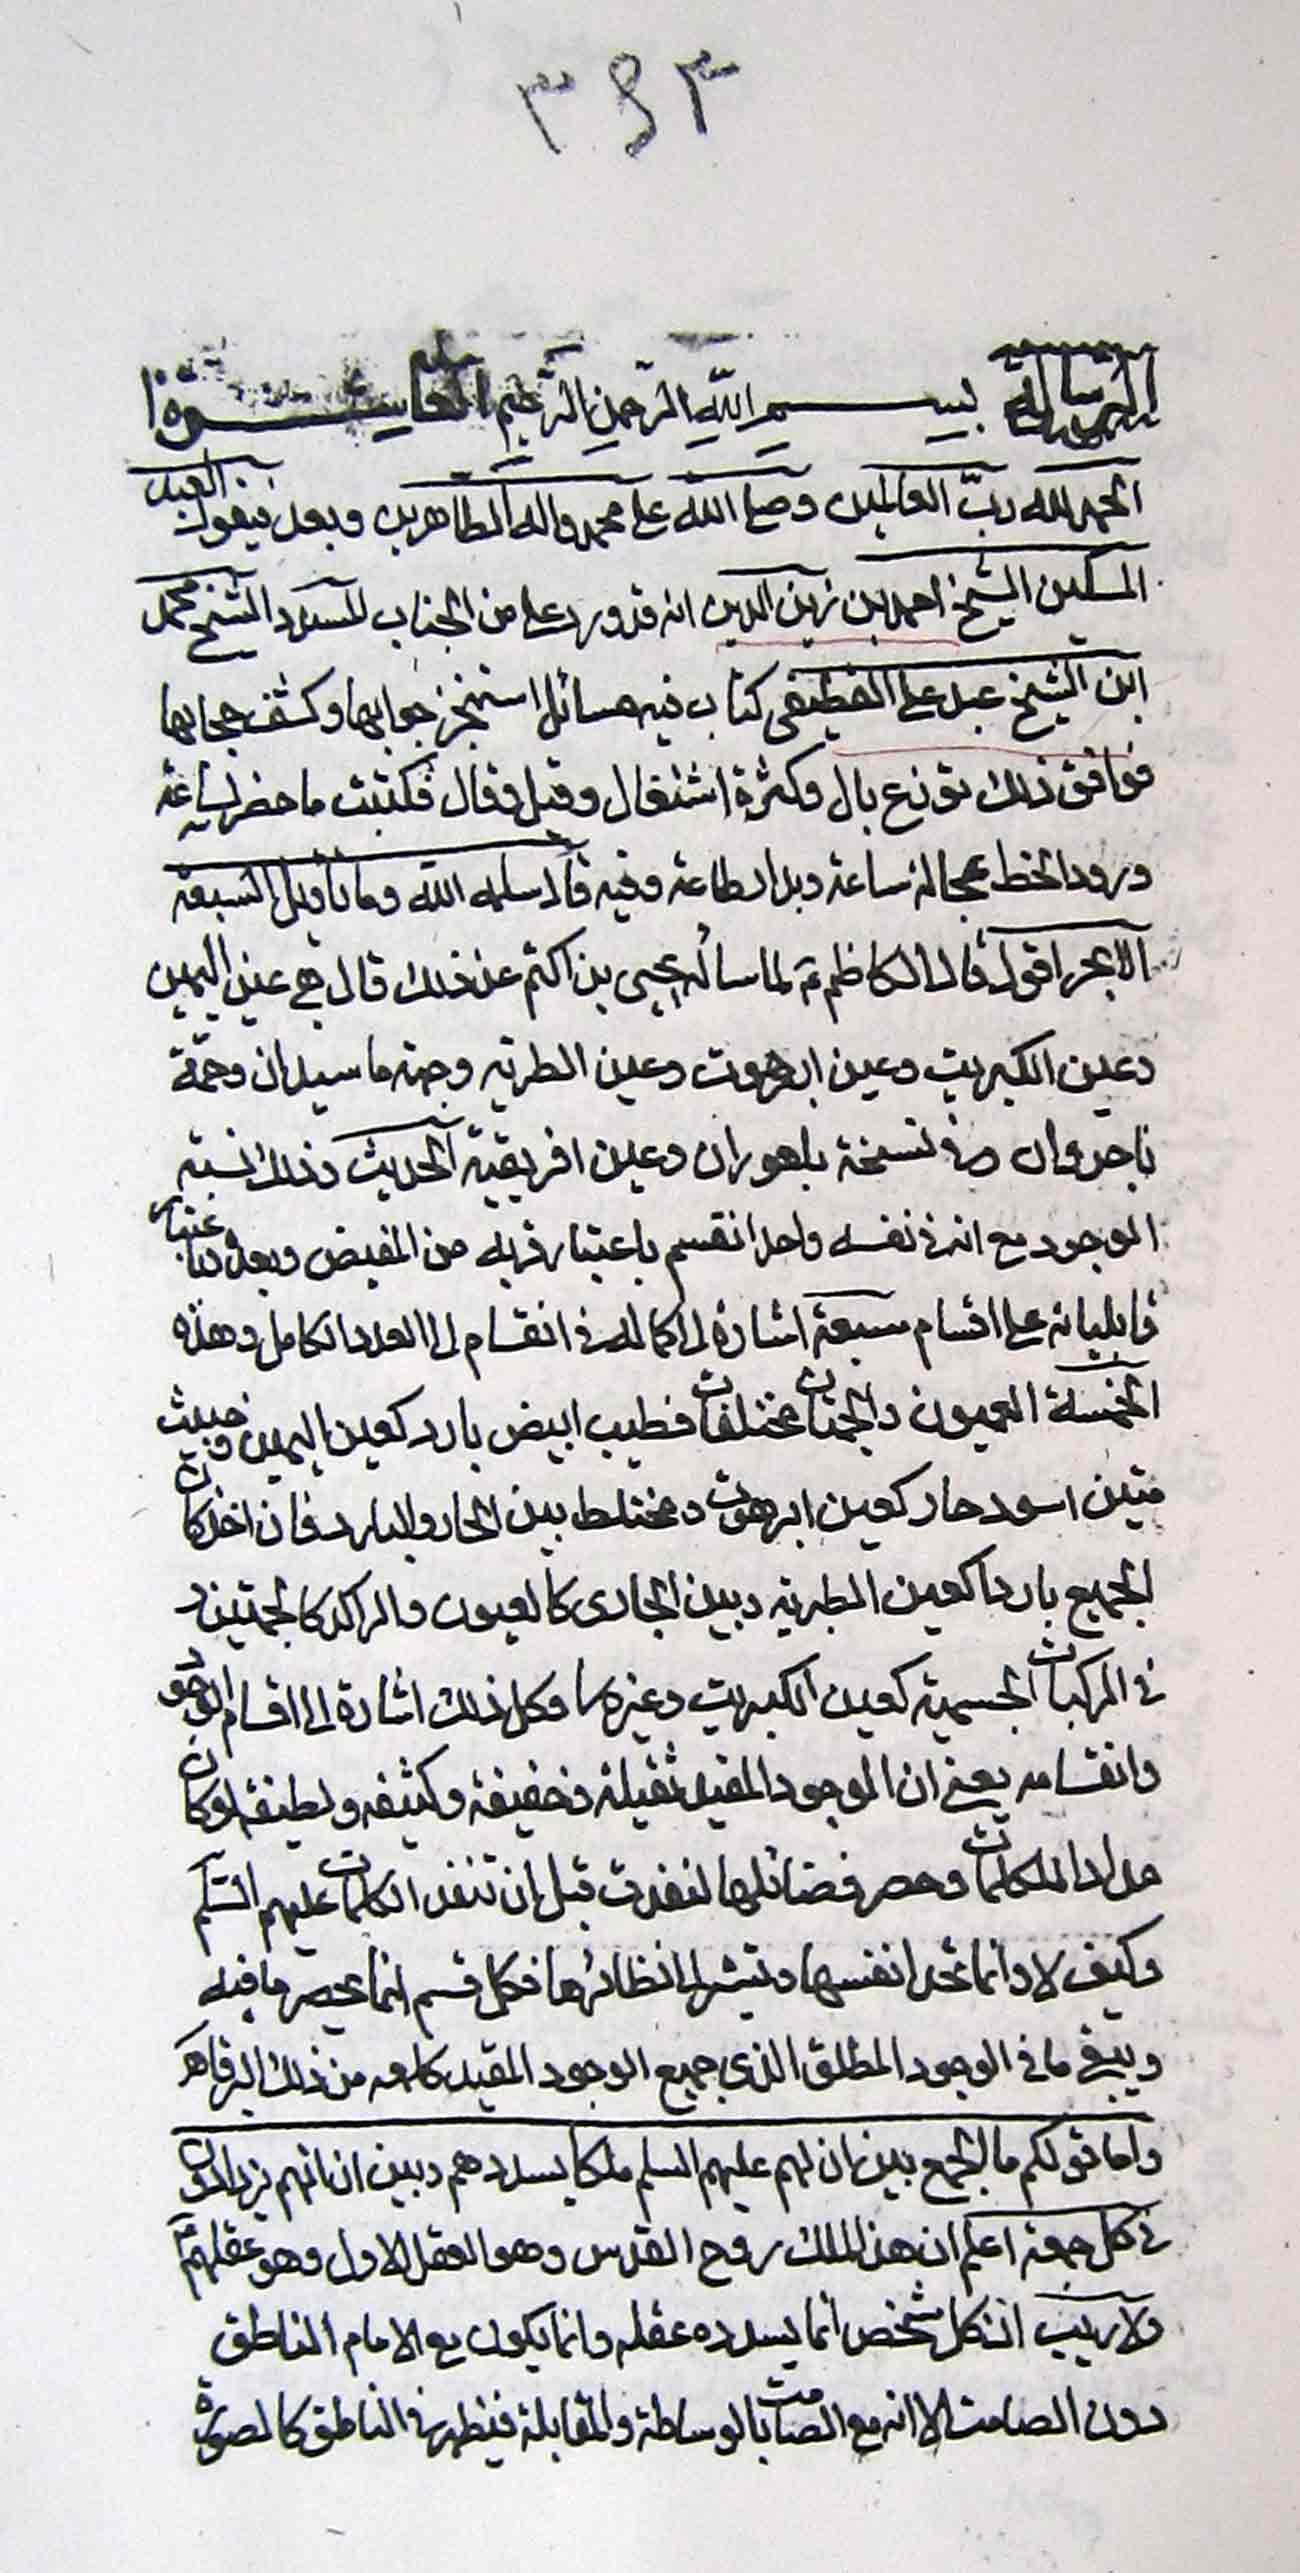 ٣٤٣
الرسالة بسم الله الرحمن الرحيم العاشرة
الحمد لله رب العالمين وصلى الله على محمد واله الطاهرين وبعد فيقول العبد
المسكين الشيخ احمد بن زين الدين انه قد ورد على من الجناب المسدد الشيخ محمد
ابن الشيخ عبد على القطيفى كتاب فيه مسائل استنجز جوابها وكشف حجابها
فوافق ذلك توزع بال وكثرة اشتغال وقيل وقال فكتبت ما حضر لساعة
ورود الخط عجالة ساعة وبدار طاعة وفيه قال سلمه الله وما تأويل السبعة
الابحر اقول قال الكاظم ع لما سأله يحيى بن اكثم عن ذلك قال هى عين اليمين
وعين الكبريت وعين ابرهوت وعين الطبرية وحمة ماسيدان وحمة
ناجروان وفى نسخة بلعوران وعين افريقية الحديث وذلك نسبة
الوجود مع انه فى نفسه واحد انقسم باعتبار قربه من المفيض وبعده وباعتبار
قابلياته على اقسام سبعة اشارة الى كماله فى انقسام الى العدد الكامل وهذه
الخمسة العيون والحمتان مختلفات فطيب ابيض بارد كعين اليمين وخبيث
منتن اسود حار كعين ابرهوت ومختلط بين الحار والبارد فان اخذ كان
الجميع باردا كعين الطبرية وبين الجارى كالعيون والراكد كالحمتين و
فى المركبات الجسمية كعين الكبريت وغيرها وكل ذلك اشارة الى اقسام الوجود
وانقسامه يعنى ان الموجود المقيد ثقيلة وخفيفة وكثيفه ولطيفه لو كان
مدادا لملكلمات وحصر فضائلها لنفدت قبل ان تنفد الكلمات عليهم السلم
وكيف لا وانما تحد انفسها وتشير الى نظائرها فكل قسم انما يحصر ما فيه
ويبقى ما فى الوجود المطلق الذى جميع الوجود المقيد كله من ذلك البر قاهر
واما قولكم ما الجمع بين ان لهم عليهم السلم ملكا يسددهم وبين ان انهم يزدادون
فى كل جمعة اعلم ان هذا الملك روح القدس وهو العقل الاول وهو عقلهم ع
ولا ريب ان كل شخص انما يسدده عقله وانما يكون مع الامام الناطق
دون الصامت الا انه مع الصامت بالوساطة والمقابلة فيظهر فى الناطق كالصورة